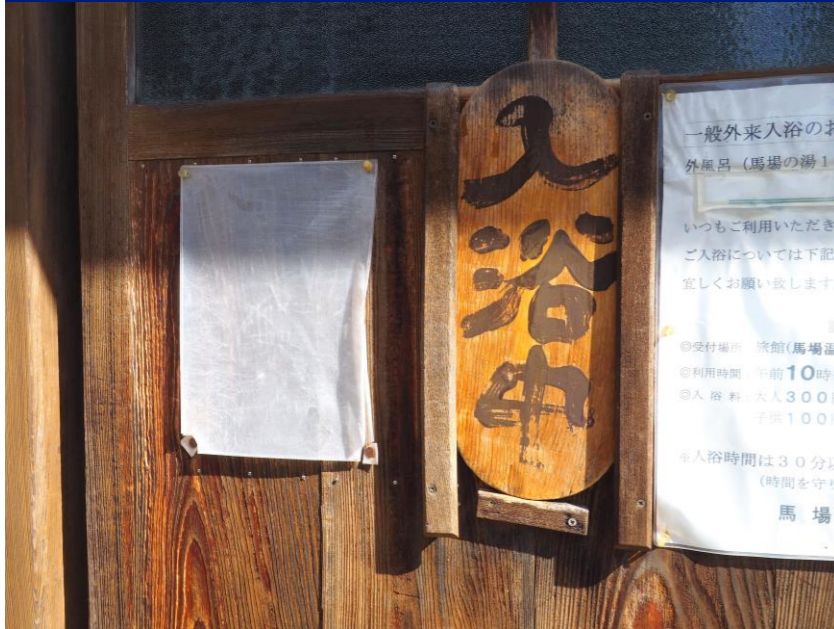 入浴中
一般外来入浴のお
外風呂（馬場の湯1
いつもご利用いただき
ご入浴については下記
宜しくお願い致します
◎受付場所 旅館(馬場温
◎利用時間 午前10時
◎入浴料 大人300円
子供100円
※入浴時間は30分以
（時間を守り
馬場